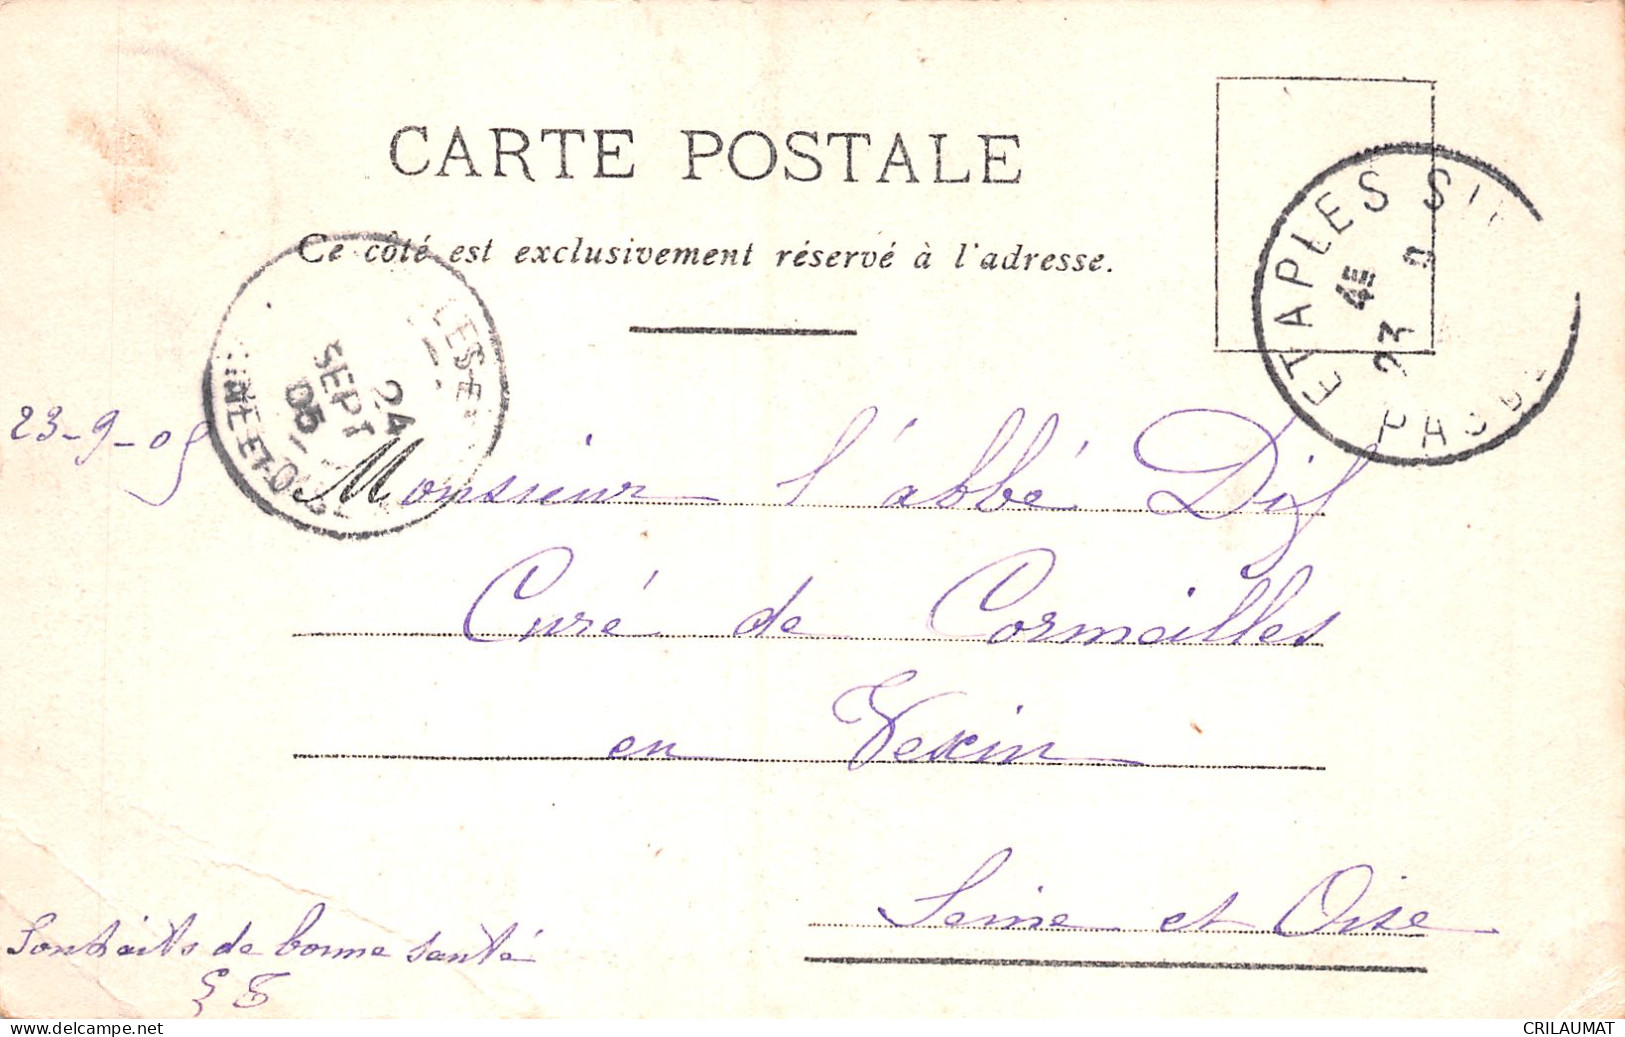 CARTE POSTALE
Ce côté est exclusivement réservé à l'adresse.
ETAPLES
4E
23
24
SEPT
05
23-9-05
Monsieur l'abbé
Curé de Cormeilles
en Vexin
Seine et Oise
Souhaits de bonne santé
CRILAUMAT